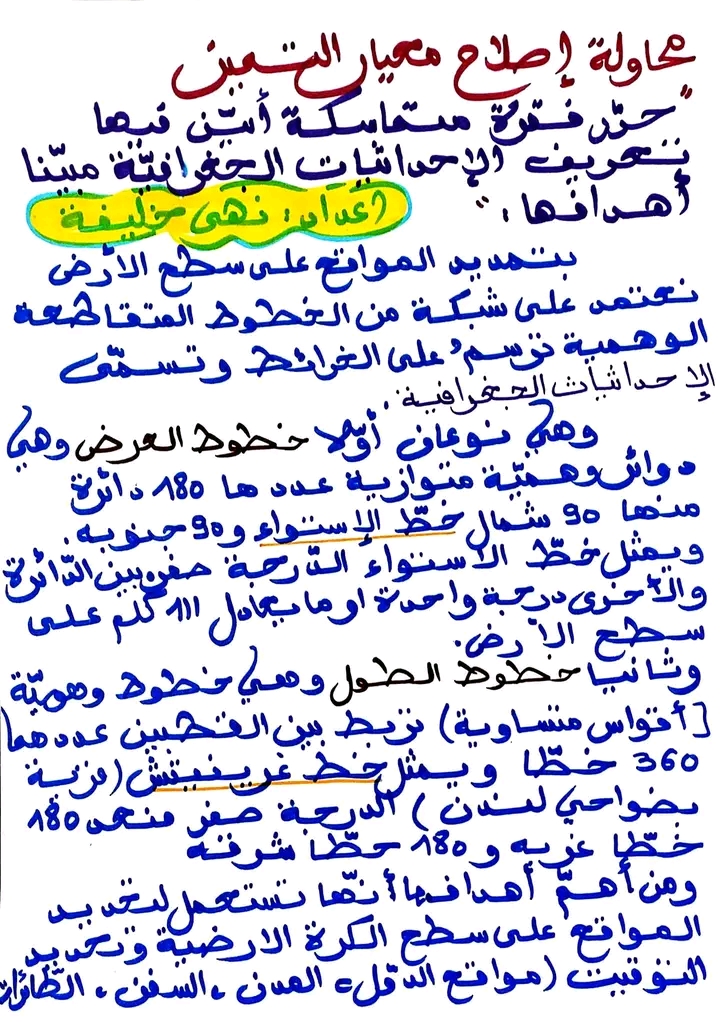 محاولة إصلاح معيار التميز
"حرّر فقرة متماسكة أبيّن فيها
تعريف الإحداثيات الجغرافيّة مبيّنا
أهدافها."
اعداد: نهى خليفة
بتحديد المواقع على سطح الأرض
نعتمد على شبكة من الخطوط المتقاطعة
الوهمية ترسم على الخرائط وتسمّى
الإحداثيات الجغرافية.
وهي نوعان أوّلا خطوط العرض وهي
دوائر وهميّة متوازية عددها 180 دائرة
منها 90 شمال خطّ الإستواء و90 جنوبه.
ويمثل خطّ الاستواء الدّرجة صفر، بين الدّائرة
والأخرى درجة واحدة او ما يعادل 111 كلم على
سطح الأرض.
وثانيا خطوط الطول وهي خطوط وهميّة
[أقواس متساوية) تربط بين القطبين عددها
360 خطّا ويمثل خط غرينيتش (قرية
بضواحي لندن) الدرجة صفر منهم 180
خطّا غربه و 180 خطّا شرقه
ومن أهمّ أهدافها أنّها تستعمل لتحديد
المواقع على سطح الكرة الارضية وتحديد
التوقيت (مواقع الدّول، المدن، السفن، الطّائرات